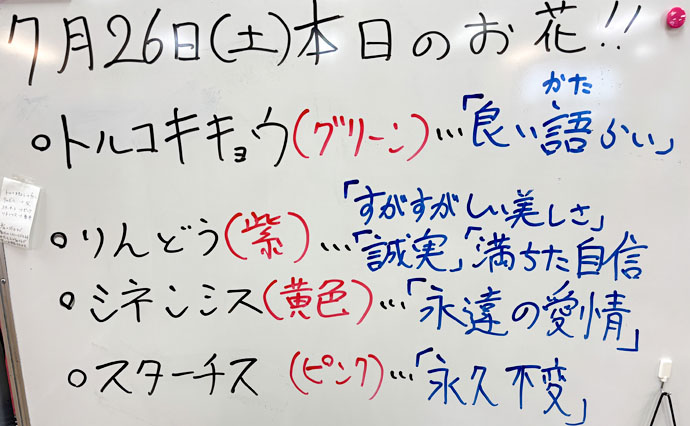 7月26日(土)本日のお花!!
・トルコキキョウ(グリーン)…「良い語らい」
かた
「すがすがしい美しさ」
・りんどう(紫)…「誠実」「満ちた自信
・ミネンシス(黄色)…「永遠の愛情」
・スターチス (ピンク)…「永久不変」